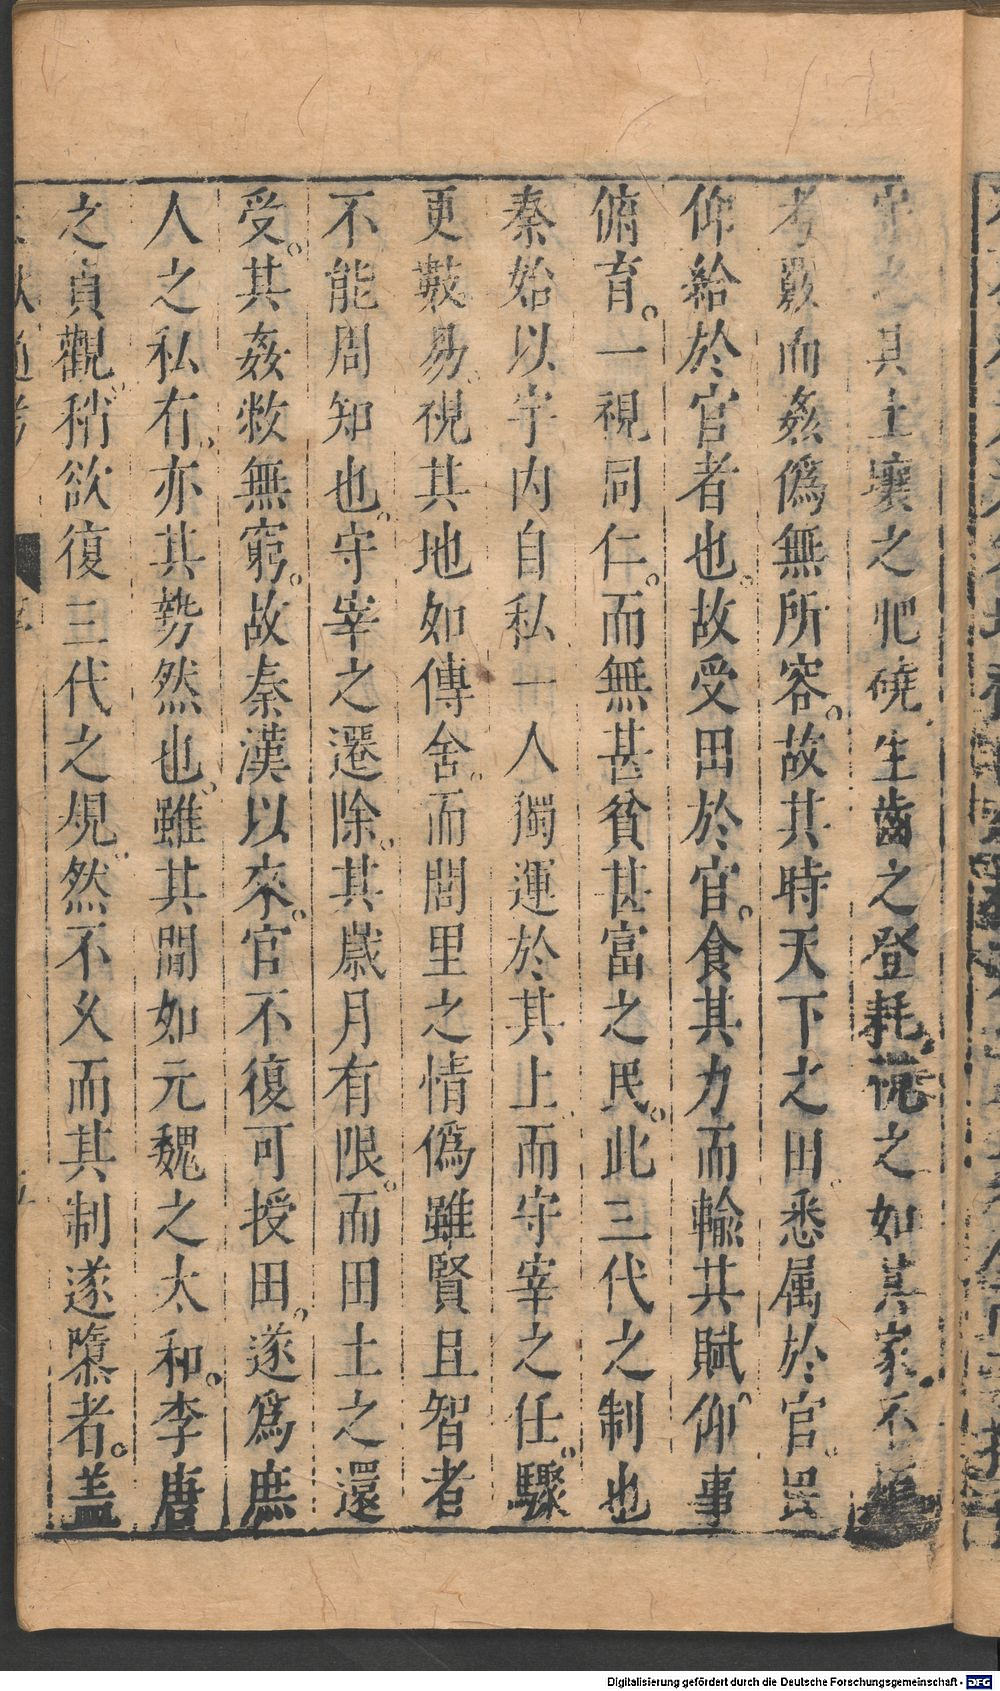 守之其土壤之肥磽、生齒之登耗、視之如其家、不
考覈而姦僞無所容。故其時天下之田、悉属於官。民
仰給於官者也。故受田於官。食其力而輸其賦、仰事
俯育。一視同仁。而無甚貧甚富之民。此三代之制也
秦始以宇内自私一人獨運於其上、而守宰之任。驟
更數易、視其地如傳舍、而閭里之情僞雖賢且智者
不能周知也。守宰之遷除。其歲月有限。而田土之還
受。其姦敝無窮。故秦漢以來。官不復可授田、遂爲庶
人之私有、亦其勢然也。雖其間如元魏之太和。李唐
之貞觀、稍欲復三代之規、然不久而其制遂隳者。盖
Digitalisierung gefördert durch die Deutsche Forschungsgemeinschaft - DFG